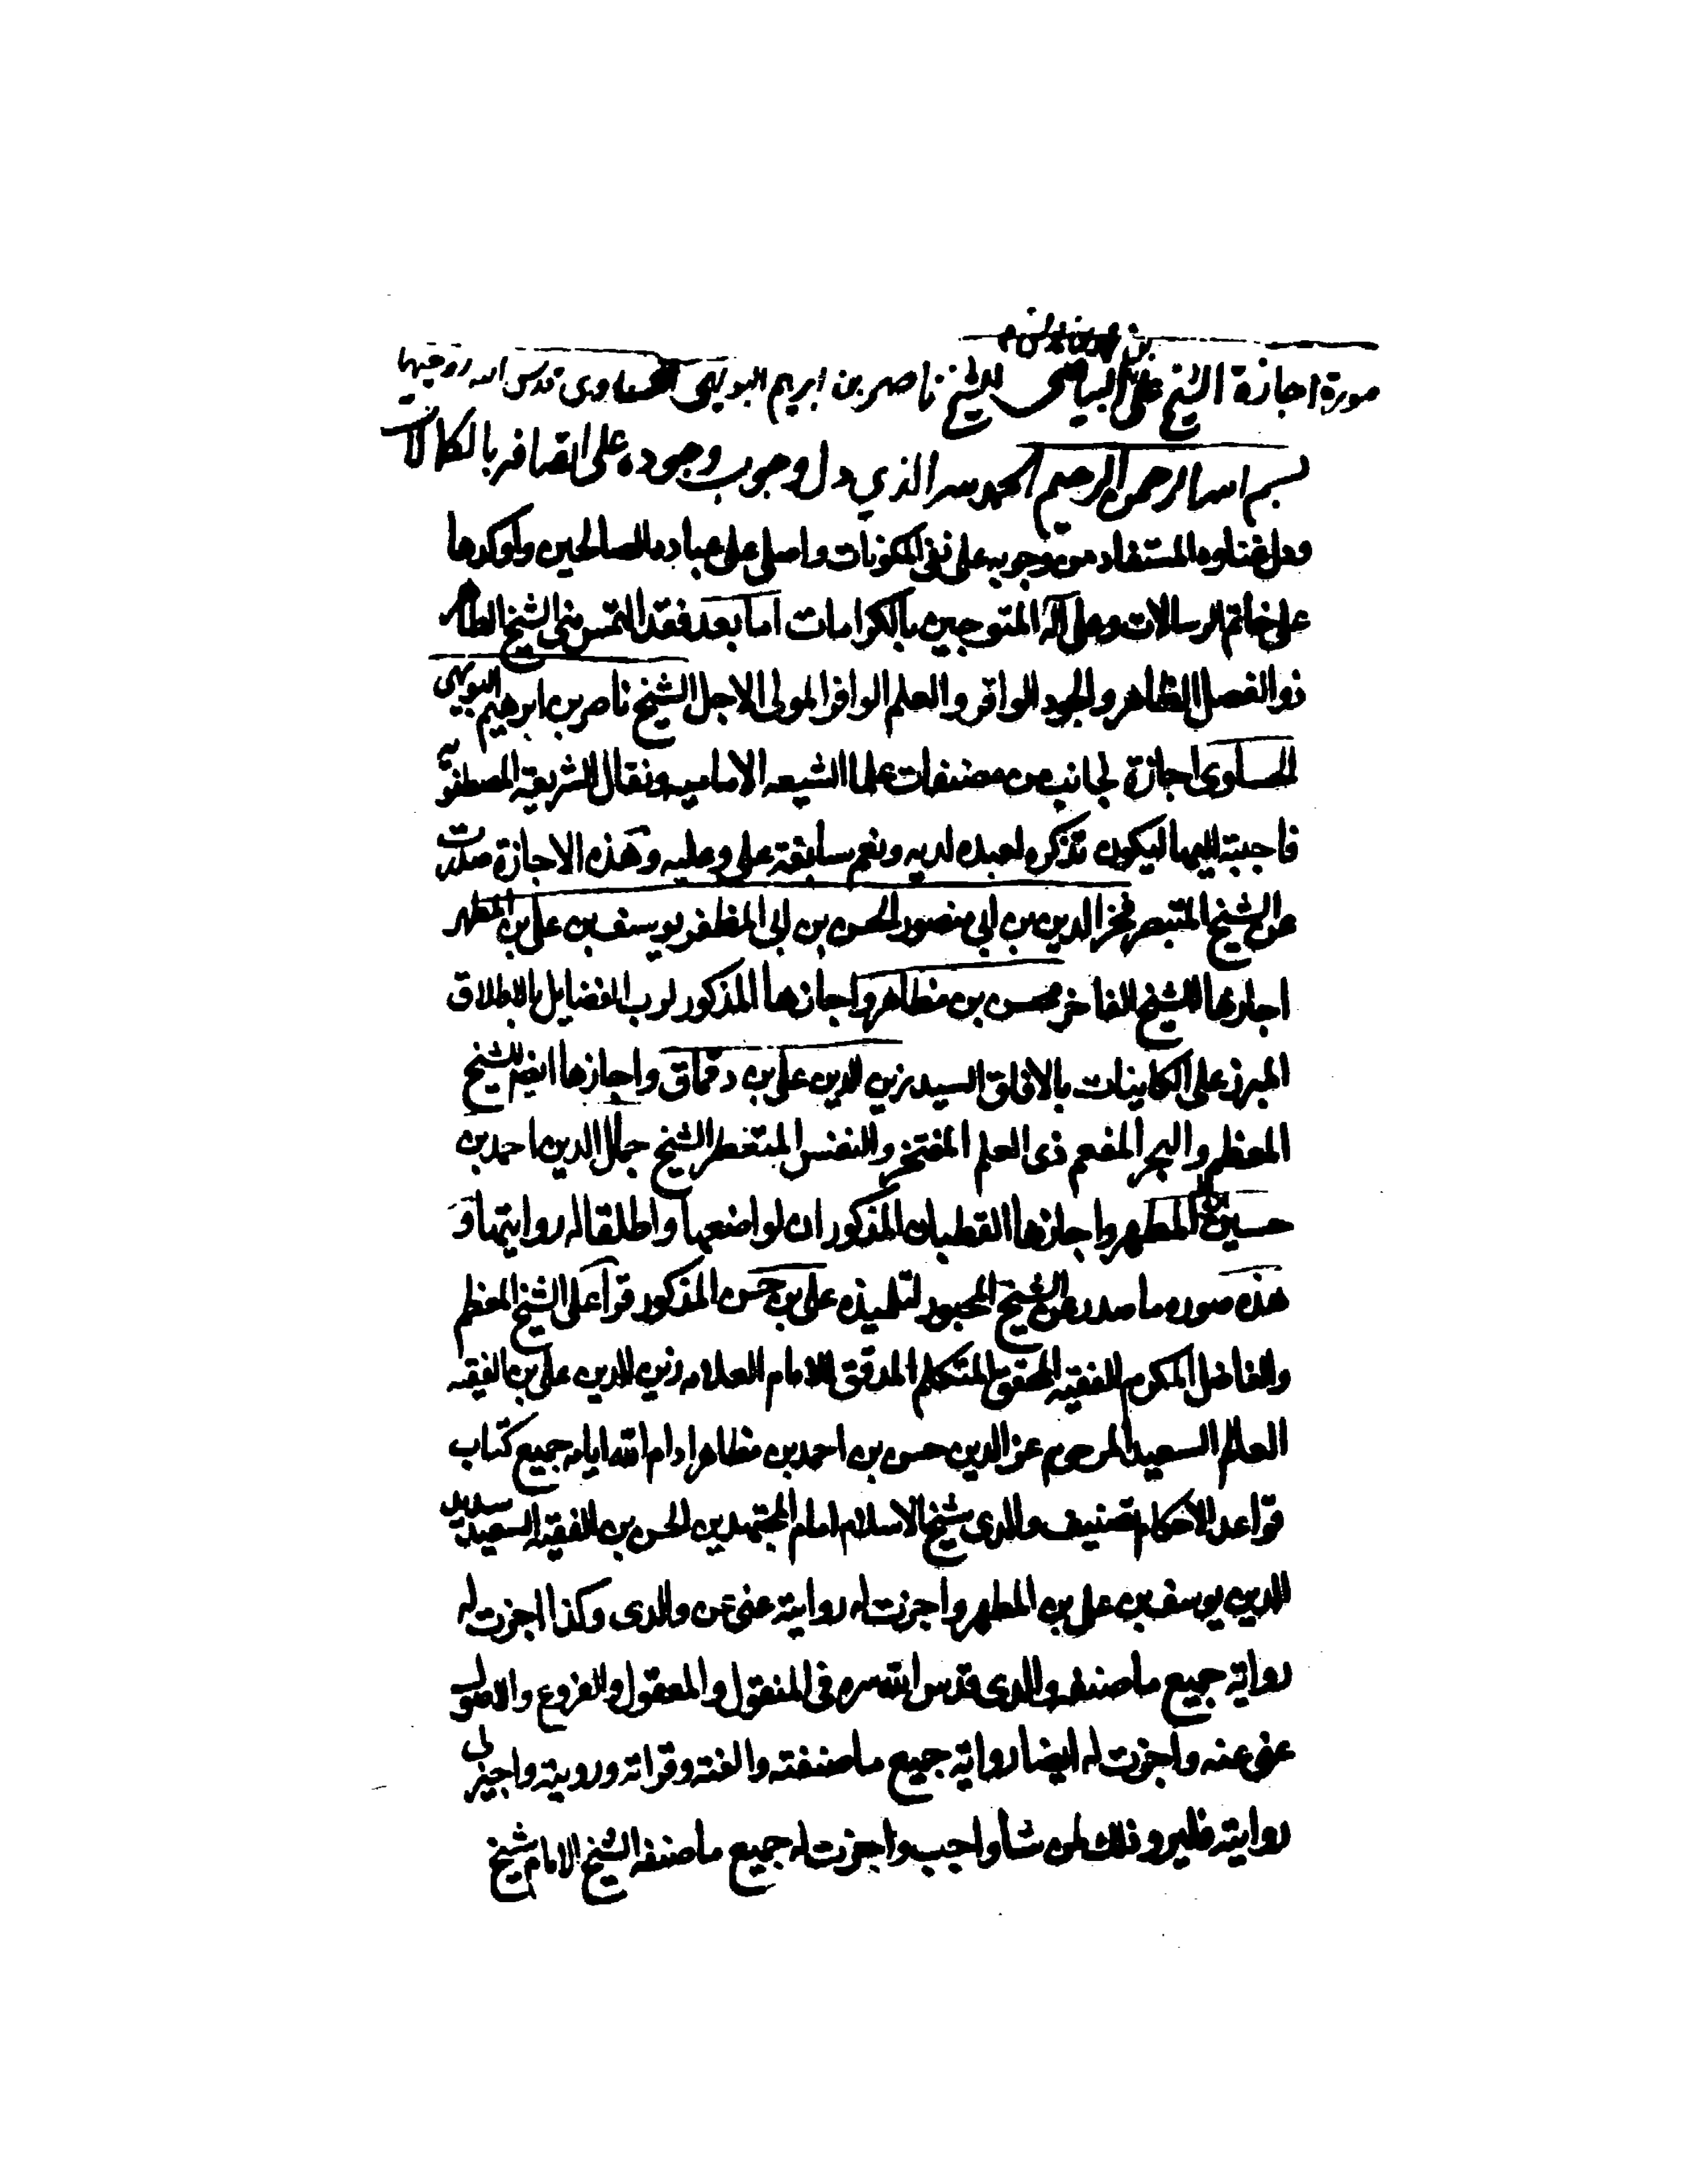 صورة اجازة الشيخ علي بن محمد بن يونس البياضي للشيخ ناصر بن ابرهيم البويهي الحساوي قدس الله روحيهما
بسم الله الرحمن الرحيم الحمد لله الذي دل وجوب وجوده على اتصافه بالكمالات
ودل غناوه المستفاد من وجوبه على نفي المكونات واصلي على عباده الصالحين واوكدها
على خاتم الرسالات وعلى آله المتوجين بالكرامات اما بعد فقد التمس مني الشيخ الطاهر
ذو الفضل الظاهر والجود الوافر والعلم الوافر المولى الاجل الشيخ ناصر بن ابرهيم البويهي
الحساوي اجازة لجانب من مصنفات علما الشيعه الاماميه ونقال الشريعة المصطفوية
فاجبته اليها ليكون تذكره لعبده لديه ونعم سابقة علي وعليه وهذه الاجازة صدرت
عن الشيخ المتبصر فخر الدين بن ابي منصور الحسن بن ابي المظفر يوسف بن علي بن المطهر
اجازها للشيخ الفاخر حسن بن مظاهر واجازها المذكور لرب الفضايل بالاطلاق
المبرز على الكاينات بالافاق السيد زين الدين علي بن دقماق واجازها ايضا للشيخ
المعظم والبحر المفعم ذي العلم المفتخر والنفس الشيخ جمال الدين احمد بن
حسين المطهر واجازها القطبان المذكوران لواضعها واطلقا له روايتها و
هذه صوره ما صدر عن الشيخ المحبور لتلميذه علي بن حسن المذكور قرأ على الشيخ المعظم
والفاضل المكرم الفقيه المحقق المتكلم المدقق الامام العلامه زين الدين علي بن الفقيه
العالم السعيد المرحوم عز الدين حسن بن احمد بن مظاهر ادام الله ايامه جميع كتاب
قواعد الاحكام تصنيف والدي شيخ الاسلام امام المجتهدين الحسن بن الفقيه السعيد سديد
الدين يوسف بن علي بن المطهر واجزت له روايته عني عن والدي وكذا اجزت له
رواية جميع ما صنفه والدي قدس الله سره في المنقول والمعقول والفروع والاصول
عني عنه واجزت له ايضا رواية جميع ما صنفته والفته وقراته ورويته واجيز لي
روايته فليرو ذلك لمن شأ واحب واجزت له جميع ما صنفه الشيخ الامام شيخ